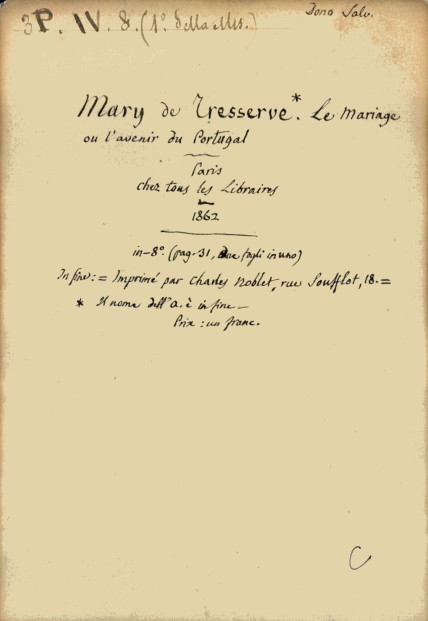 3P. IV. 8. (1º. della Misc.)
Dono Salv.
Mary de Tresserve*. Le Mariage
ou l'avenir du Portugal
Paris
chez tous les Libraires
1862
in-8º. (pag. 31, due fogli in uno)
In fine: = Imprimé par Charles Noblet, rue Soufflot, 18. =
* Il nome dell'a. è in fine —
Prix : un franc.
C